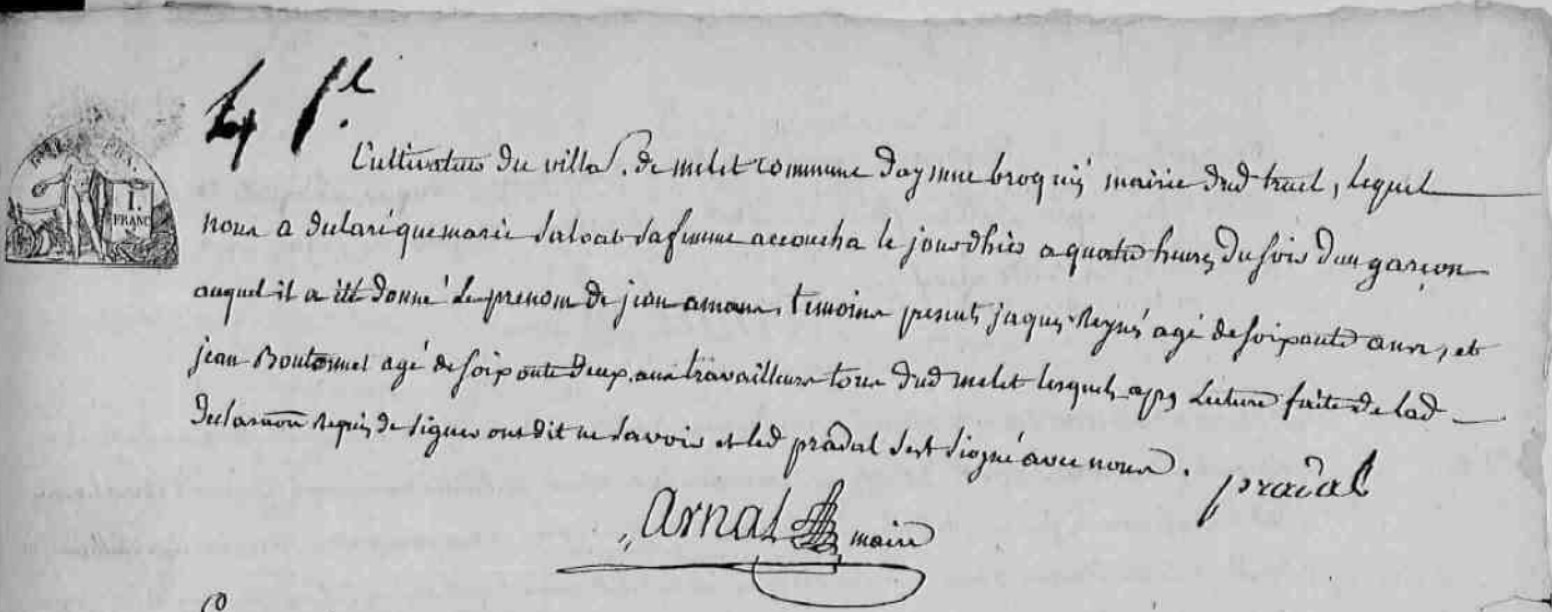 4 f.l
Cultivateur du villa. de melet commune d'aymne broquiés mairie dud truel, lequel
nous a declaré que marie salvat sa femme accoucha le jour d'hier a quatre heures du soir d'un garçon
auquel il a été donné le prenom de jean amans, temoins presents jaques Reynés agé de soixante ans, et
jean Boutonnet agé de soixante deux ans travailleurs tous dud melet lesquels aprs Lecture faite de lad
declaraon Requis de signer ont dit ne savoir et led pradal s'est signé avec nous.
pradal
Arnal maire
1.
FRANC